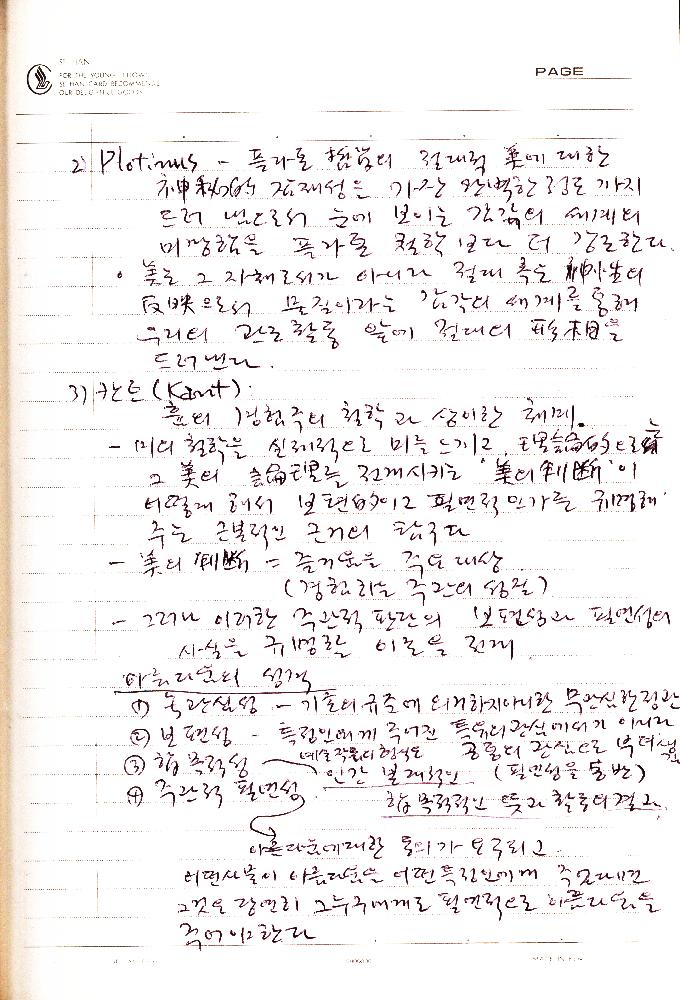 SE HAN
FOR THE YOUNG
SE HAN CARD RECOMMENDS
OUR DELIGHTFUL GOODS
PAGE
2) Plotinus - 플라톤 哲学의 절대적 美에 대한
神秘的 잠재성은 가장 완벽한 정도 까지
드러 냄으로서 눈에 보이는 감각의 세계의
미망함을 플라톤 철학 보다 더 강조한다.
• 美는 그 자체로서가 아니라 절대 혹은 神性의
反映으로서 물질이라는 감각의 세계를 통해
우리의 관조활동 앞에 절대의 形相을
드러낸다.
3) 칸트 (Kant).
흄의 경험주의 철학과 상이한 체계.
- 미의 철학을 실제적으로 미를 느끼고 理論的으로
그 美의 論理를 전개시키는 '美의 判断'이
어떻게 해서 보편的이고 필연적인가를 규명해
주는 근본적인 근거의 탐구다
- 美의 判断 = 즐거움을 주는 대상
(경험하는 주관의 성질)
- 그러나 이러한 주관적 판단의 보편성과 필연성의
사실을 규명할 이론을 전개
아름다움의 성격
① 무관심성 - 기호의 규준에 의거하지아니한 무관심한 정관
② 보편성 - 특정인에게 주어진 특유의 관심에서가 아니라
공통의 관심으로 부터 생김
③ 合목적성 예술작품의 형식도
인간 본래적인 (필연성을 동반)
④ 주관적 필연성 合목적적인 뜻과 활동의 결과.
아름다움에 대한 동의가 요구되고
어떤사물이 아름다움을 어떤특정인에게 주었다면
그것은 당연히 그누구에게도 필연적으로 아름다움을
주어야한다